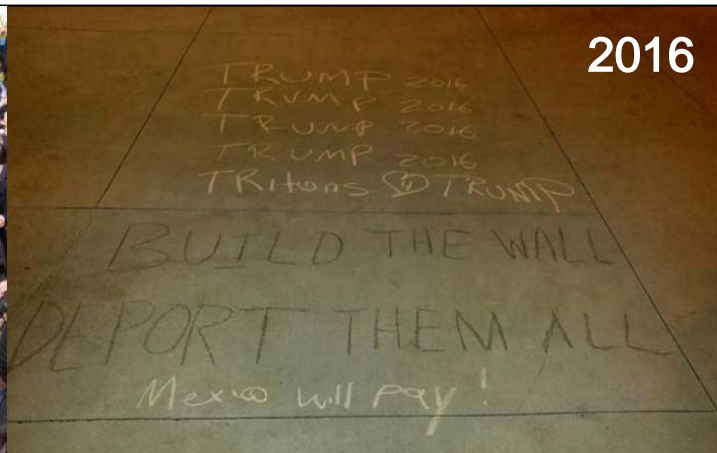 2016
TRUMP 2016
TRUMP 2016
TRUMP 2016
TRUMP 2016
TRitons 4 TRUMP
BUILD THE WALL
DEPORT THEM ALL
Mexico will pay!